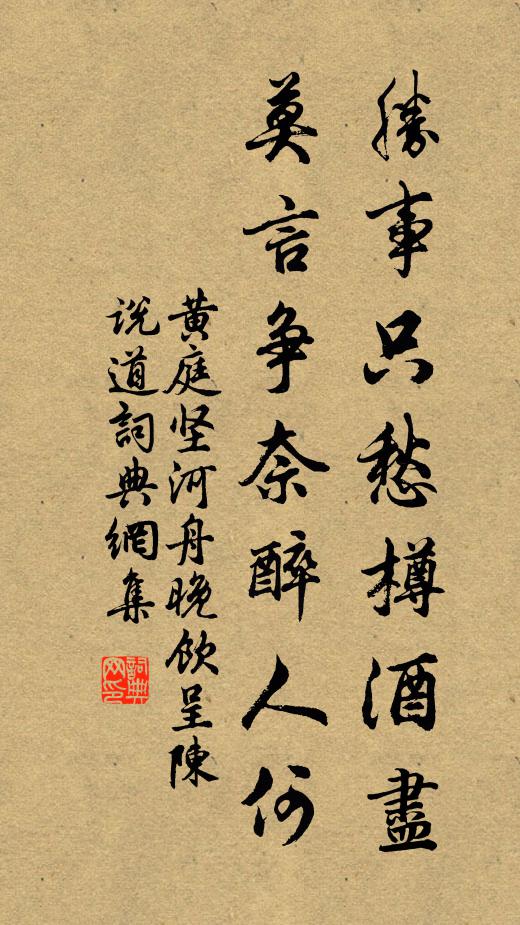 勝事只愁樽酒盡
莫言争奈醉人何
黄庭坚河舟晚飲呈陳
說道詞典網集
詞典网印